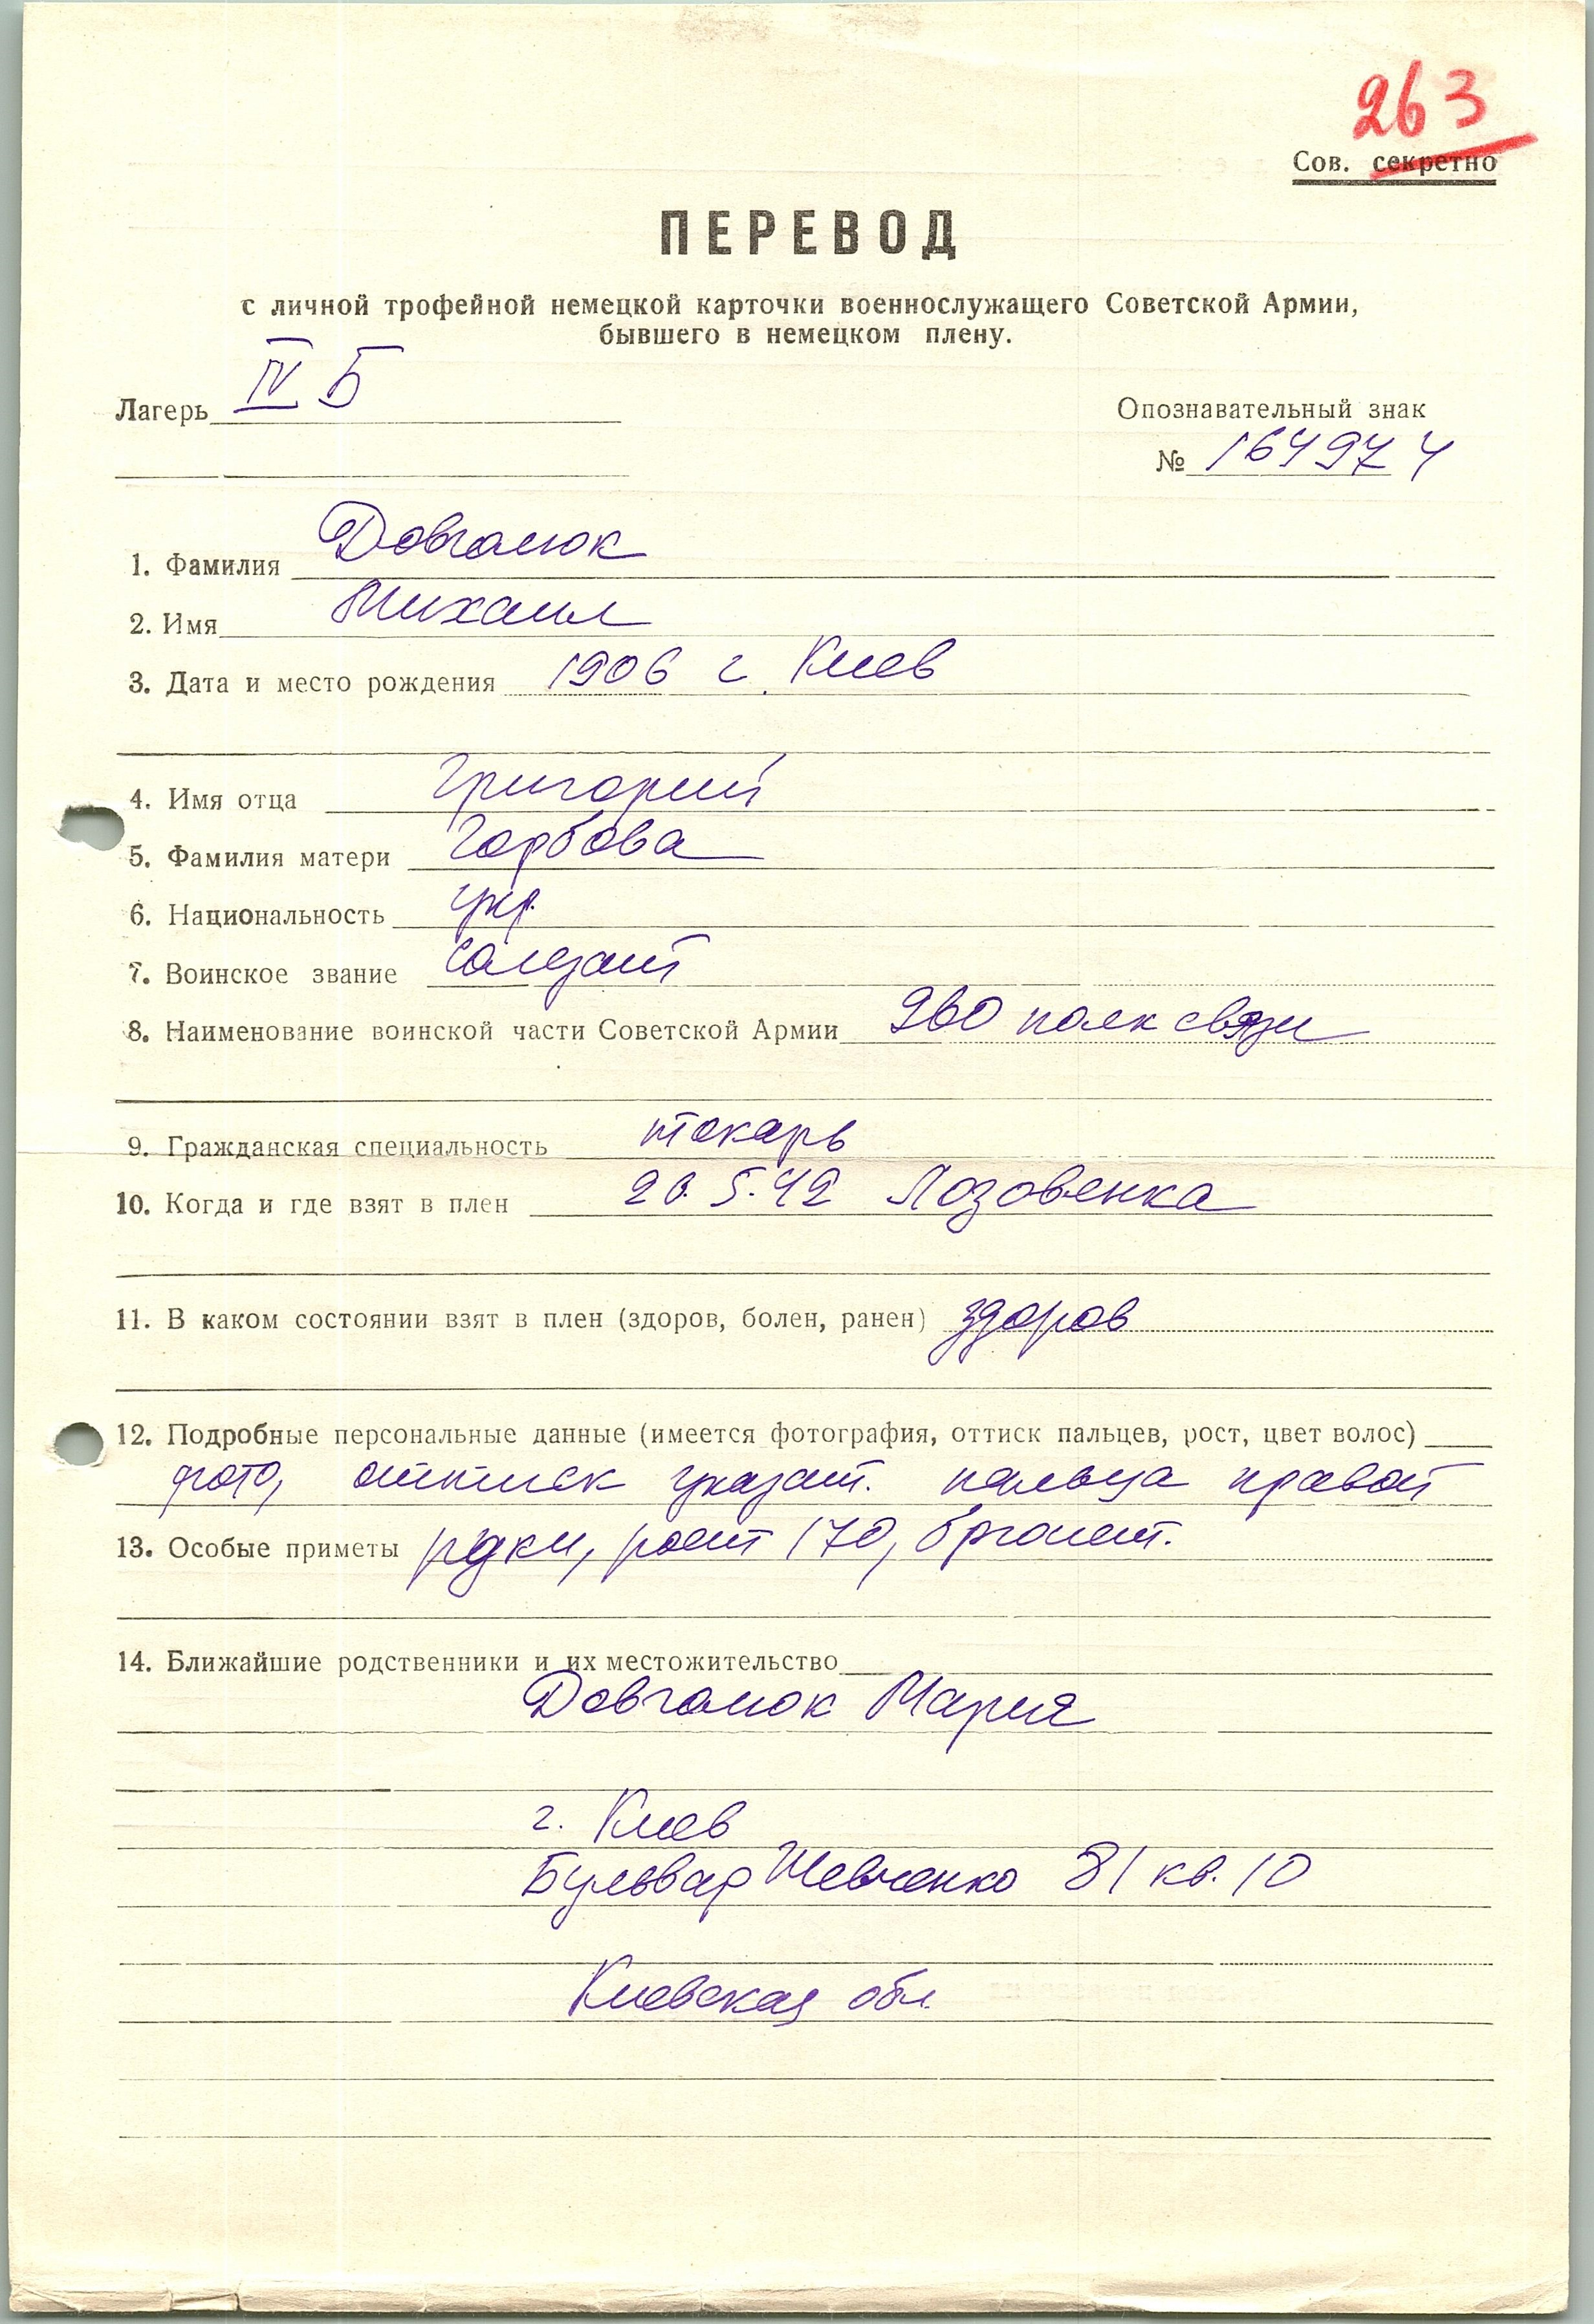 263
Сов. секретно
ПЕРЕВОД
с личной трофейной немецкой карточки военнослужащего Советской Армии,
бывшего в немецком плену.
Лагерь IV Б
Опознавательный знак
№ 164974
1. Фамилия Довгалюк
2. Имя Михаил
3. Дата и место рождения 1906 г. Киев
4. Имя отца Григорий
5. Фамилия матери Горбова
6. Национальность укр.
7. Воинское звание солдат
8. Наименование воинской части Советской Армии 960 полк связи
9. Гражданская специальность токарь
10. Когда и где взят в плен 5.42 Лозовенка
11. В каком состоянии взят в плен (здоров, болен, ранен) здоров
12. Подробные персональные данные (имеется фотография, оттиск пальцев, рост, цвет волос)
фото, оттиск указат. пальца правой
13. Особые приметы руки, рост 170,
14. Ближайшие родственники и их местожительство
Довгалюк Мария
г. Киев
Бульвар Шевченко 81 кв. 10
Киевская обл.